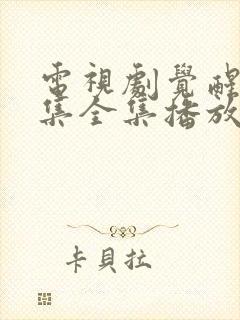 電視劇覺醒
集全集播放
卡貝拉